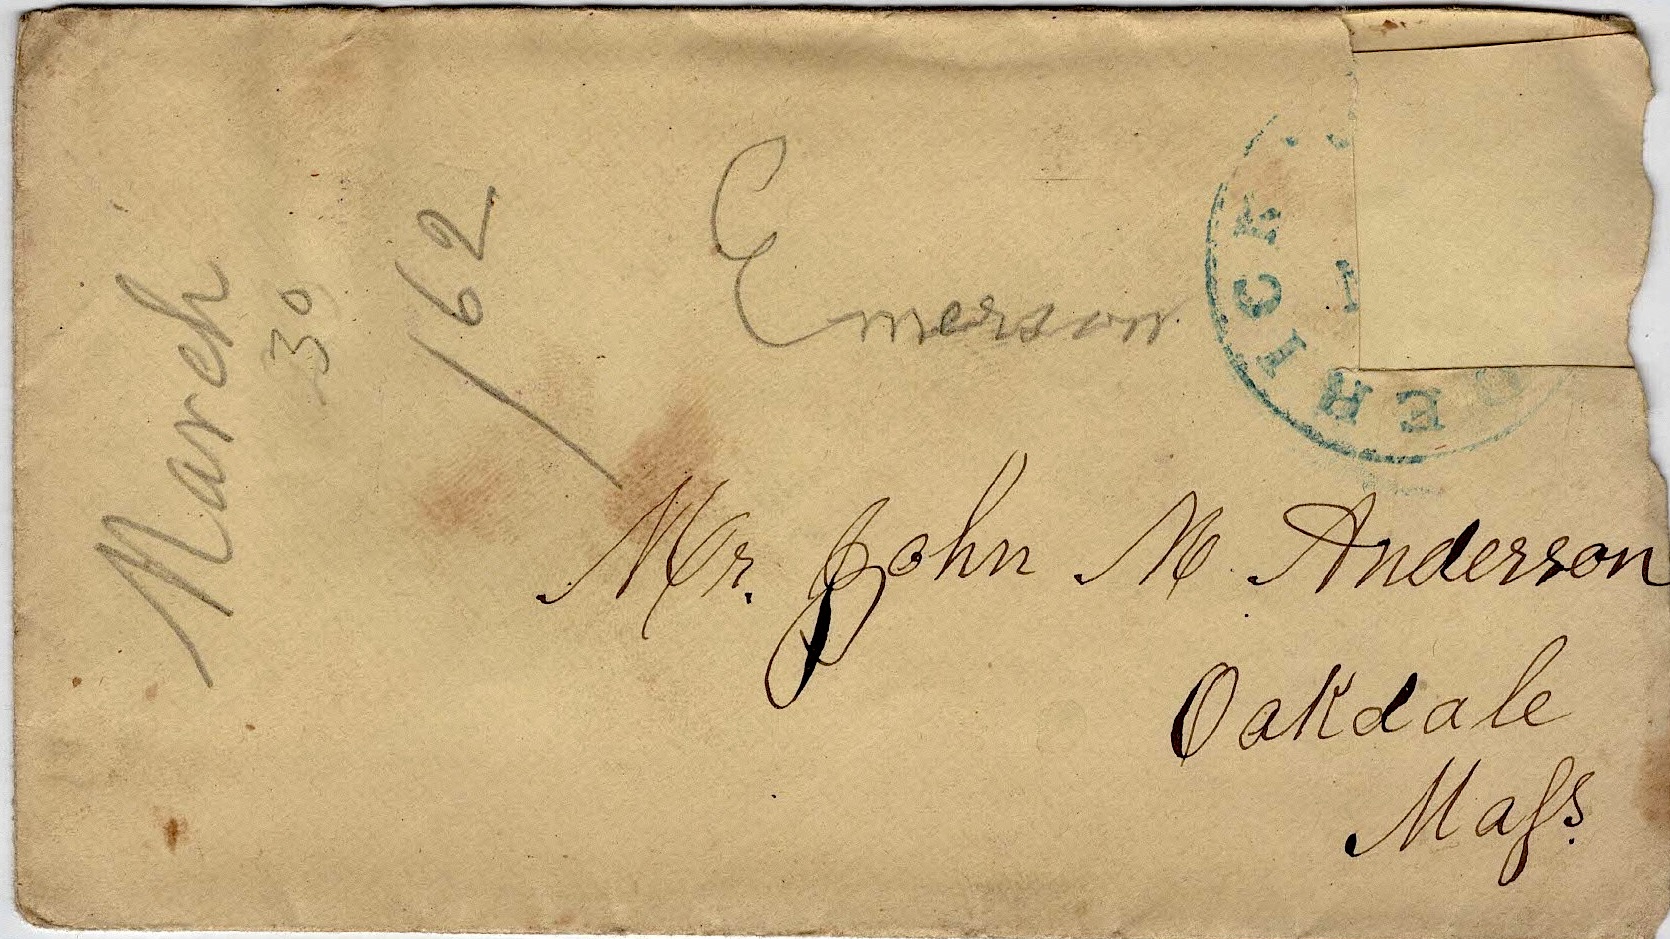 March
30
/62
Emerson
DERICK
1
Mr. John M Anderson
Oakdale
Maſs.